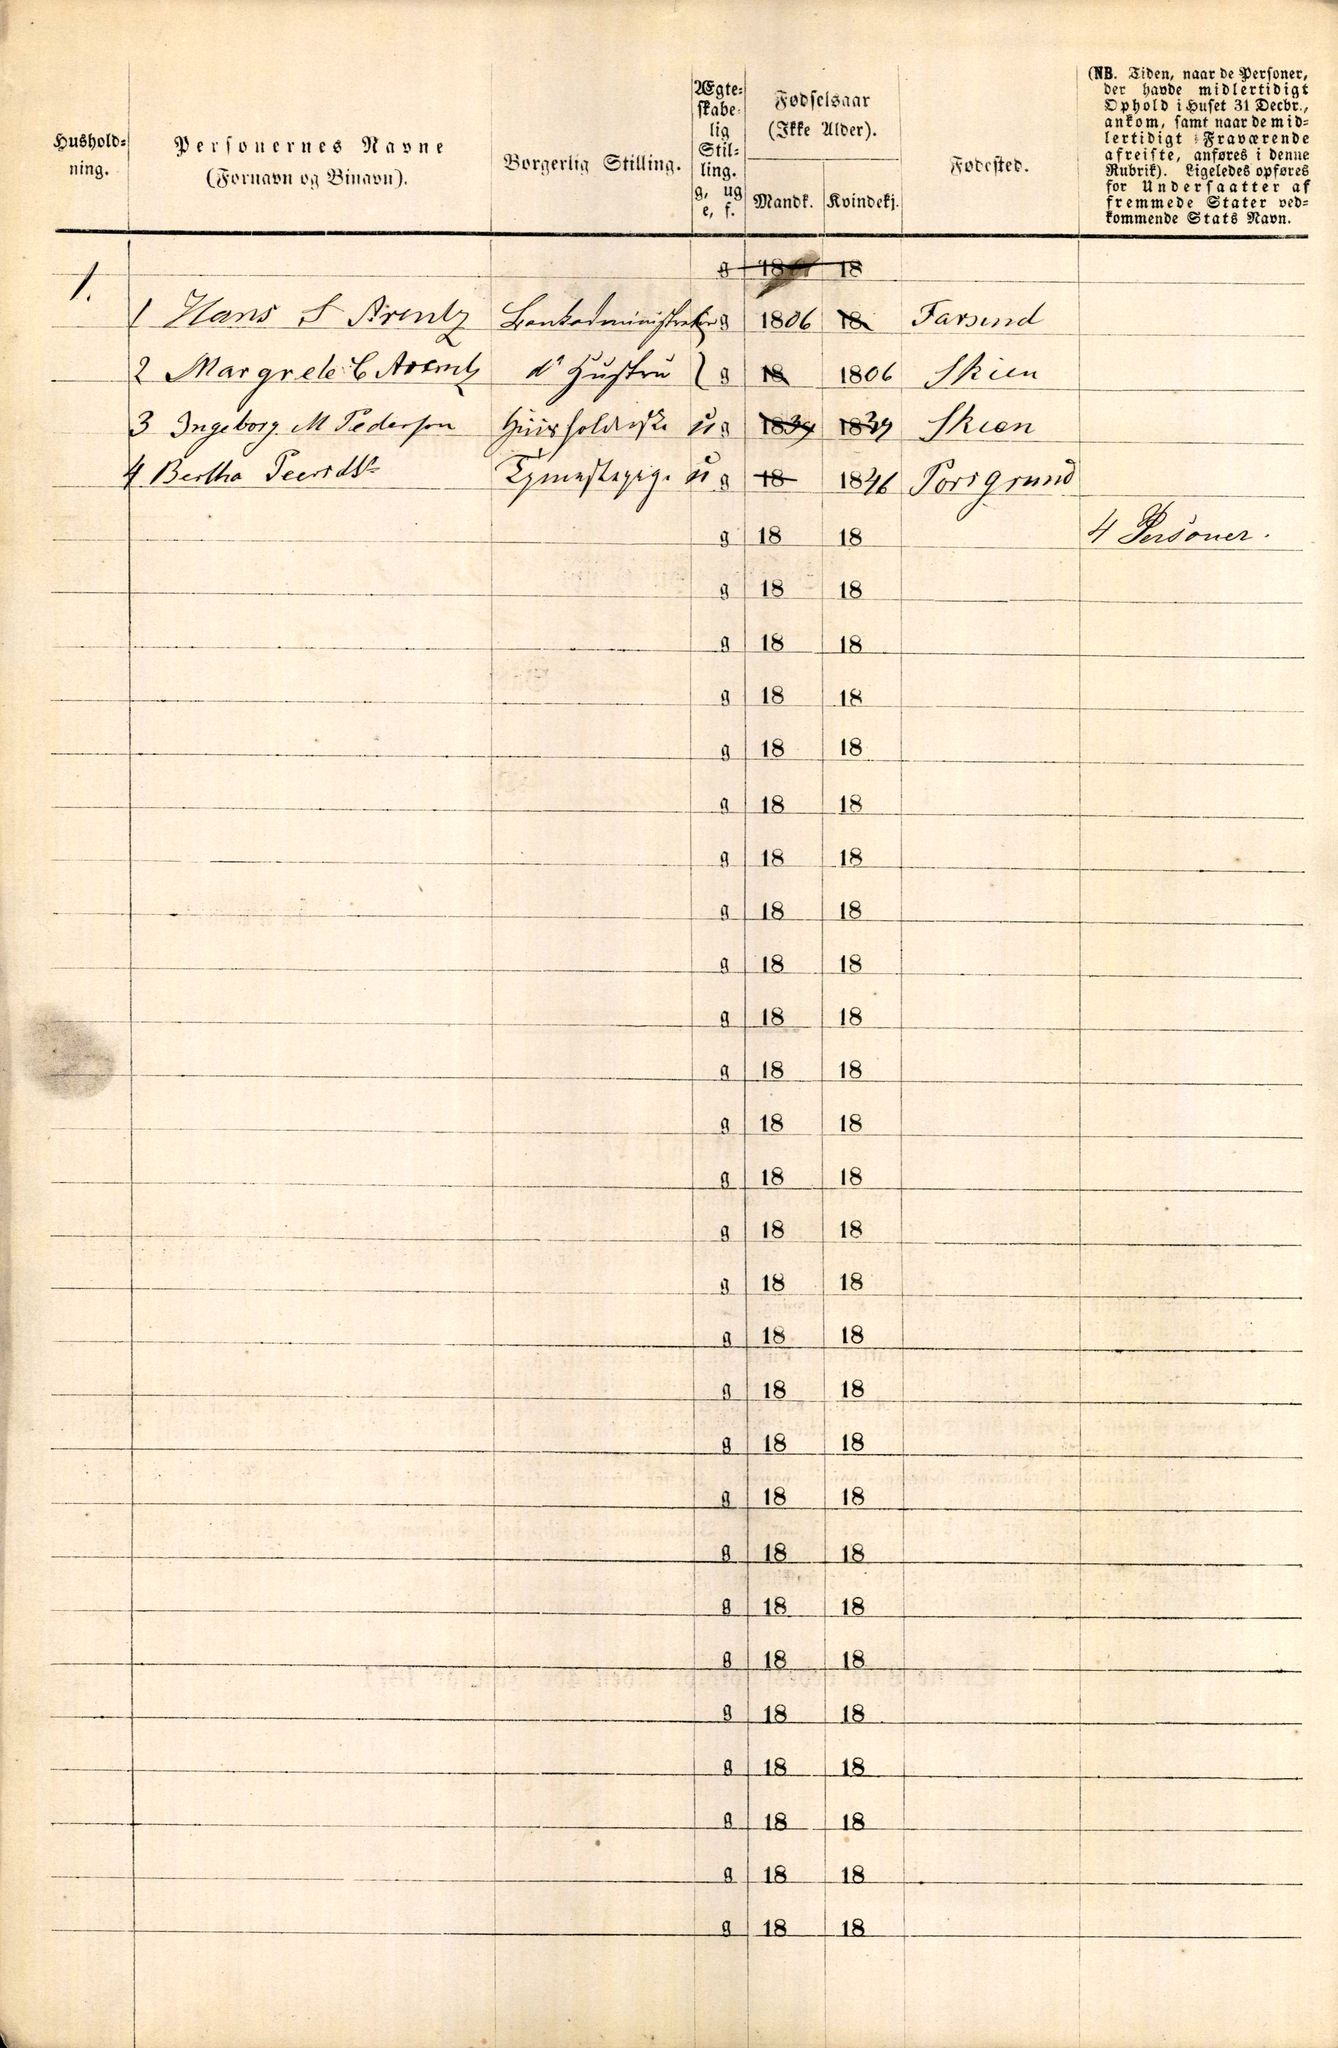 Hushold-
ning.
Personernes Navne
(Fornavn og Binavn).
Borgerlig Stilling.
Ægte-
skabe-
lig
Stil-
ling.
g, ug
e, f.
Fødselsaar
(Ikke Alder).
Mandk.
Kvindekj.
Fødested.
(NB. Tiden, naar de Personer,
der havde midlertidigt
Ophold i Huset 31 Decbr.,
ankom, samt naar de mid-
lertidigt Fraværende
afreiste, anføres i denne
Rubrik). Ligeledes opføres
for Undersaatter af
fremmede Stater ved-
kommende Stats Navn.
g 18 18
1.
1 Hans S Arentz Bankadministrator g 1806 18 Farsund
2 Margrete C Arentz d° Hustru g 18 1806 Skien
3 Ingeborg M Pedersen Huusholderske u g 1839 1839 Skien
4 Bertha Peersdtr Tjenestepige u g 18 1846 Porsgrund
g 18 18 4 Personer.
g 18 18
g 18 18
g 18 18
g 18 18
g 18 18
g 18 18
g 18 18
g 18 18
g 18 18
g 18 18
g 18 18
g 18 18
g 18 18
g 18 18
g 18 18
g 18 18
g 18 18
g 18 18
g 18 18
g 18 18
g 18 18
g 18 18
g 18 18
g 18 18
g 18 18
g 18 18